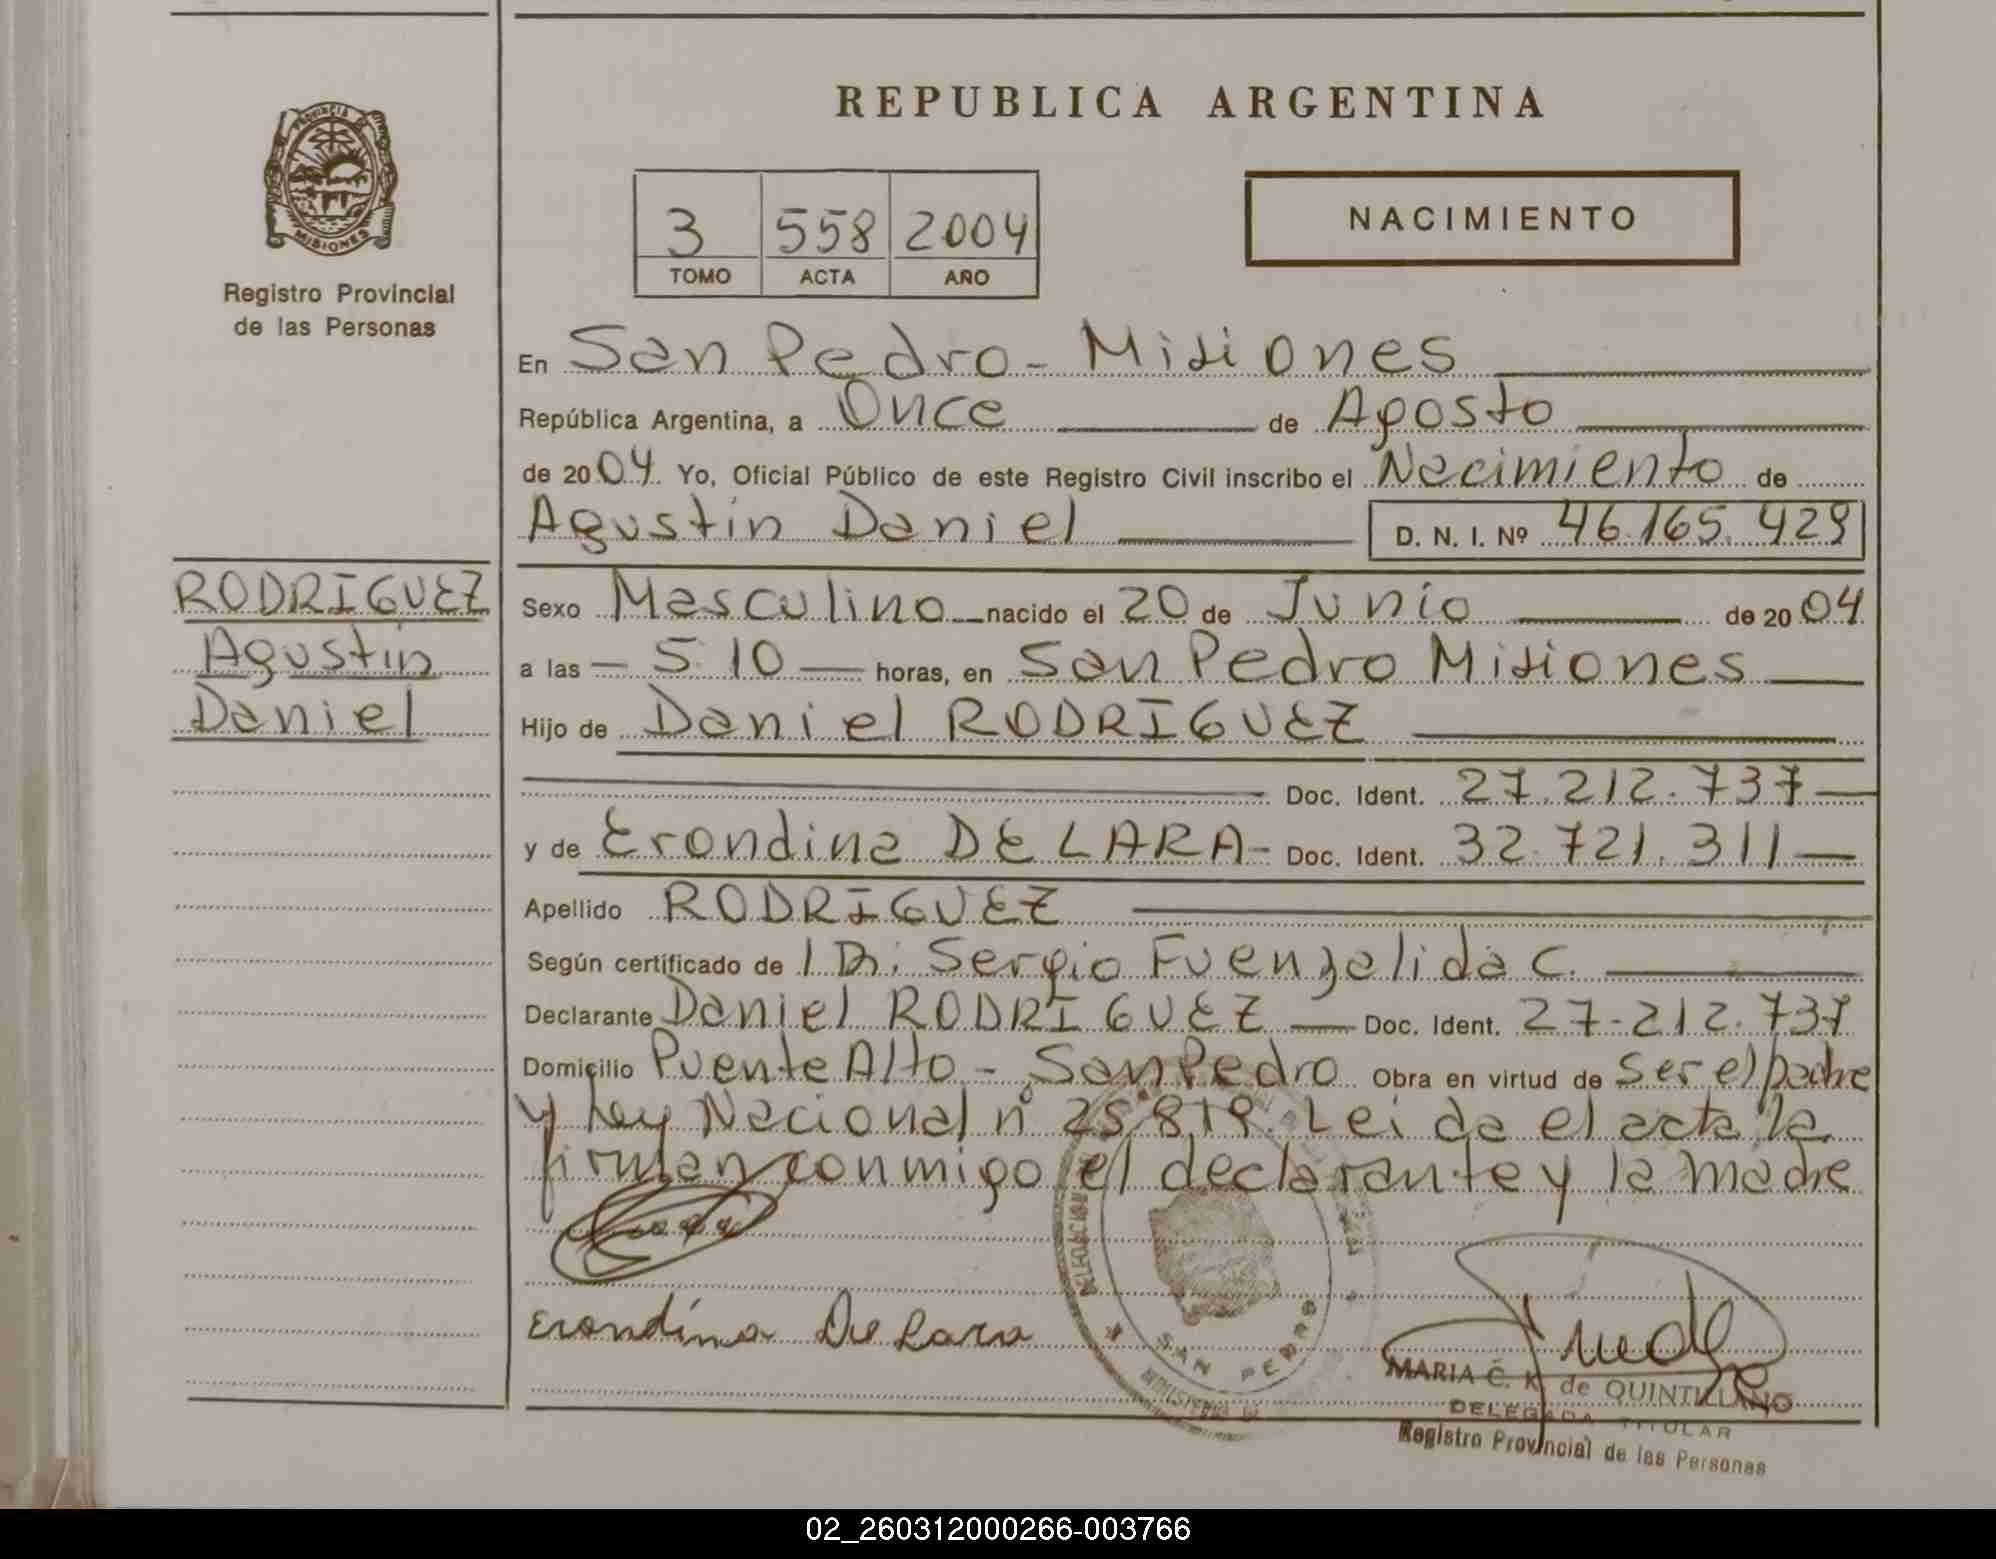 PROVINCIA DE
MISIONES
Registro Provincial
de las Personas
RODRIGUEZ
Agustin
Daniel
REPUBLICA ARGENTINA
3 558 2004
TOMO ACTA AÑO
NACIMIENTO
En San Pedro - Misiones
República Argentina, a Once de Agosto
de 2004 Yo, Oficial Público de este Registro Civil inscribo el Nacimiento de
Agustin Daniel D. N. I. Nº 46.165.429
Sexo Masculino nacido el 20 de Junio de 2004
a las 5.10 horas, en San Pedro Misiones
Hijo de Daniel RODRIGUEZ
Doc. Ident. 27.212.737
y de Erondina DE LARA - Doc. Ident. 32.721.311
Apellido RODRIGUEZ
Según certificado de Dr. Sergio Fuenzalida C.
Declarante Daniel RODRIGUEZ Doc. Ident. 27-212.737
Domicilio Puente Alto - San Pedro Obra en virtud de ser el padre
y Ley Nacional nº 25.819. Leida el acta la
firman conmigo el declarante y la madre
Erondina De Lara
DELEGACION
SAN PEDRO
MINISTERIO DE
MARIA C. K. de QUINTILLANO
DELEGADA TITULAR
Registro Provincial de las Personas
02_260312000266-003766